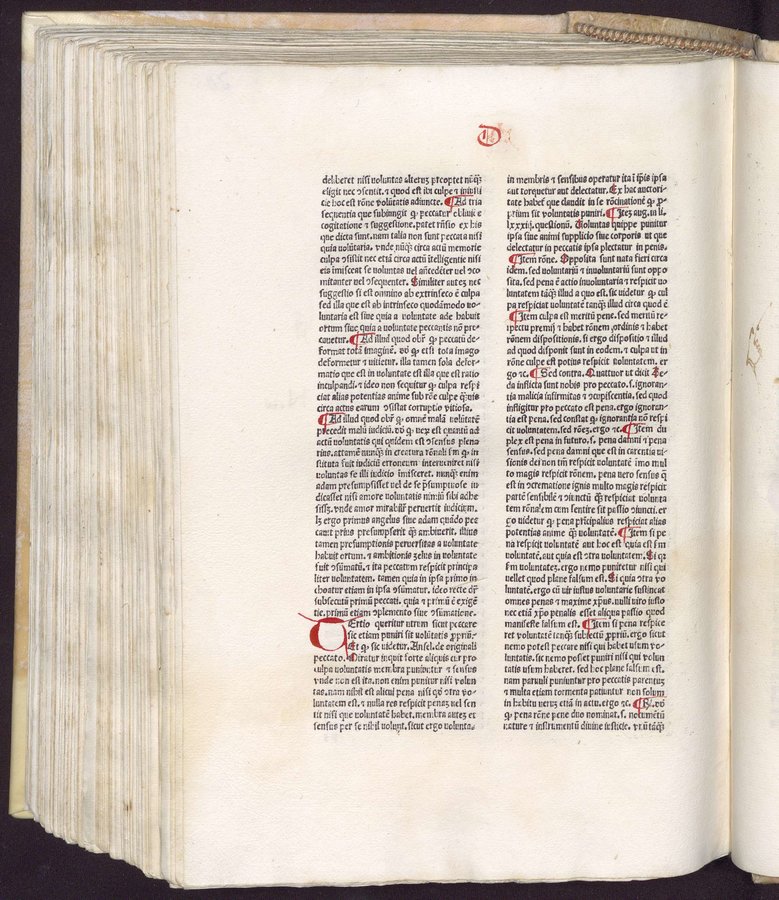 D
deliberet nisi uoluntas alteruꝫ preoptet nūꝙ̄
eligit nec ↄsentit. ⁊ quod est ibi culpe ⁊ iniusti
tie hoc est rōne uolūtatis adiuncte. ¶ Ad tria
sequentia que subiungit ꝙ peccatur obliuio e
cogitatione ⁊ suggestione. patet rn̄sio ex his
que dicta sunt. nam talia non sunt peccata nisi
quia uolūtaria. vnde nūꝙ̄ circa actū memorie
culpa ↄsistit nec etiā circa actū ītelligentie nisi
eis imisceat se uoluntas uel an̄cedēter uel ↄco
mitanter uel ↄsequenter. Similiter auteꝫ nec
suggestio si est omnino ab extrinseco ē culpa
sed illa que est ab intrinseco quodāmodo uo-
luntaria est siue quia a uoluntate ade habuit
ortum siue quia a uoluntate peccantis nō pre-
cauetur. ¶ Ad illud quod obr̄ ꝙ peccatū de-
format totā imaginē. vō ꝙ etsi tota imago
deformetur ⁊ uitietur. illa tamen sola defor-
matio que est in uoluntate est illa que est ratio
inculpandi. ⁊ ideo non sequitur ꝙ culpa respi
ciat alias potentias anime sub rōne culpe ꝙ̄uis
circa actus earum ↄsistat corruptio vitiosa.
¶ Ad illud quod obr̄ ꝙ omnē malā uolūtatē
precedit malū iudiciū. vō ꝙ veꝝ est quantū ad
actū uoluntatis qui quidem est ↄsensus plena
rius. attamē nunꝙ̄ in creatura rōnali ẜm ꝙ in-
stituta fuit iudiciū erroneum interueniret nisi
uoluntas se illi iudicio īmisceret. nunꝙ̄ enim
adam presumpsisset uel de se p̄sumptuose iu-
dicasset nisi amore uoluntatis nimiū sibi adhe
sissꝫ. vnde amor mirabiliꝰ peruertit iudiciuꝫ.
lꝫ ergo primus angelus siue adam quādo pec
cauit prius presumpserit ꝙ̄ ambiuerit. illius
tamen presumptionis peruersitas a uoluntate
habuit ortum. ⁊ ambitionis zelus in uoluntate
fuit ↄsūmatꝰ. ⁊ ita peccatum respicit principa
liter uoluntatem. tamen quia in ipsa primo in
choatur etiam in ipsa ↄsūmatur. ideo recte dr̄
subsecutū primū peccati. quia ⁊ primū ē exigē
tie. primū etiam ↄplemento siue ↄsūmatione.
Tertio queritur utrum sicut peccare
sic etiam puniri sit uolūtatis ꝓpriū.
Et ꝙ sic videtur. Ansel. de originali
peccato. Miratur inquit forte aliquis cur pro
culpa uoluntatis membra puniuntur ⁊ sensus
vnde non est ita. non enim punitur nisi volun
tas. nam nihil est alicui pena nisi qđ ↄtra vo-
luntatem est. ⁊ nulla res respicit penaꝫ vel sen
tit nisi que voluntatē habet. membra auteꝫ et
sensus per se nihil volunt. sicut ergo volunta-
in membris ⁊ sensibus operatur ita ī ip̄is ipsa
aut torquetur aut delectatur. Ex hac auctori-
tate habeꝉ que claudit in se rōcinationē ꝙ ꝓ-
prium sit voluntatis puniri. ¶ Iteꝫ aug. in li.
lxxxiij. questionū. Voluntas quippe punitur
ipsa siue animi supplicio siue corporis ut que
delectatur in peccatis ipsa plectatur in penis.
¶ Item rōne. Opposita sunt nata fieri circa
idem. sed voluntariū ⁊ inuoluntariū sunt oppo
sita. sed pena ē actio inuoluntaria ⁊ respicit vo
luntatem tāꝙ̄ illud a quo est. sic videtur ꝙ cul
pa respiciat voluntatē tanꝙ̄ illud circa quod ē
¶ Item culpa est meritū pene. sed meritū re-
spectu premij ⁊ habet rōnem ordinis ⁊ habet
rōnem dispositionis. si ergo dispositio ⁊ illud
ad quod disponit sunt in eodem. ⁊ culpa ut in
rōne culpe est potius respicit voluntatem. er
go ⁊c. ¶ Sed contra. Quattuor ut dicit Be-
da inflicta sunt nobis pro peccato. s. ignoran-
tia malicia infirmitas ⁊ ↄcupiscentia. sed quod
infligitur pro peccato est pena. ergo ignoran-
tia est pena. sed constat ꝙ ignorantia nō respi
cit voluntatem. sed rōeꝫ. ergo ⁊c. ¶ Item du
plex est pena in futuro. s. pena damni ⁊ pena
sensus. sed pena damni que est in carentia vi-
sionis dei non tm̄ respicit voluntatē īmo mul
to magis respicit rōnem. pena uero sensus q̄
est in ↄcrematione ignis multo magis respicit
partē sensibilē ⁊ ↄiunctū ꝙ̄ respiciat volunta
tem rōnalem cum sentire sit passio ↄiuncti. er
go uidetur ꝙ pena prīcipalius respiciat alias
potentias anime ꝙ̄ voluntatē. ¶ Item si pe
na respicit voluntatē aut hoc est quia est ẜm
voluntatē. aut quia est ↄtra voluntatem. Si qꝛ
ẜm voluntateꝫ. ergo nemo puniretur nisi qui
uellet quod plane falsum est. Si quia ↄtra vo
luntatē. ergo cū uir iustus voluntarie sustineat
omnes penas ⁊ maxime xp̄us. nulli viro iusto
nec etiā xp̄o penalis esset aliqua passio quod
manifeste falsum est. ¶ Item si pena respice
ret voluntatē tanꝙ̄ subiectū ꝓpriū. ergo sicut
nemo potest peccare nisi qui habet usum vo-
luntatis. sic nemo posset puniri nisi qui volun
tatis usum haberet. sed hoc plane falsum est.
nam paruuli puniuntur pro peccatis parentuꝫ
⁊ multa etiam tormenta patiuntur non solum
in habitu veruꝫ etiā in actu. ergo ⁊c. ¶ R̄. vō
ꝙ pena rōne pene duo nominat. s. nocumētū
nature ⁊ instrumentū diuine iusticie. vnū tāꝙ̄